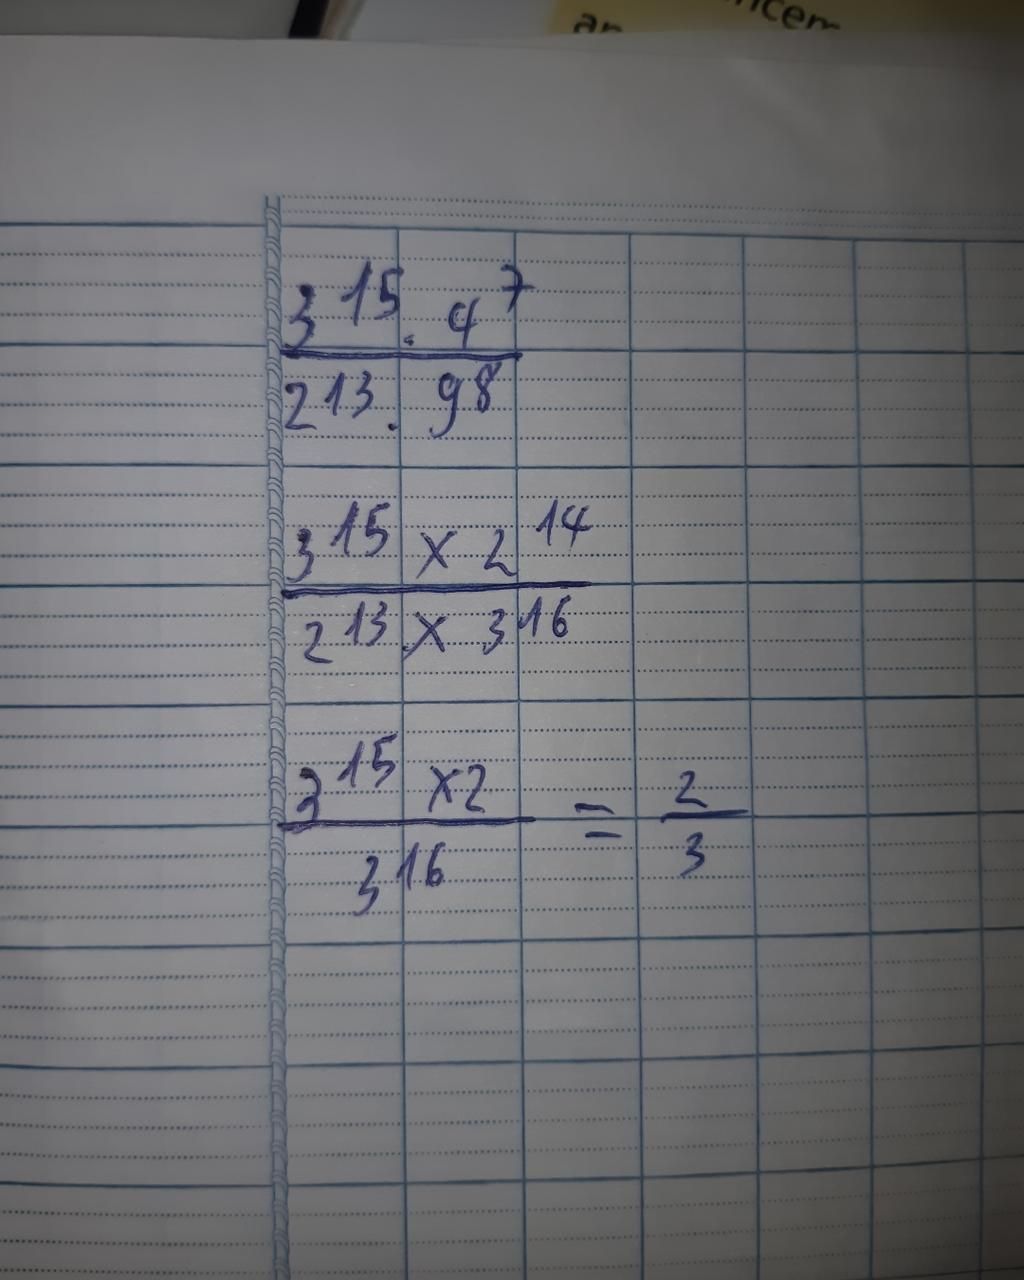 ncem
an
3^15 . 4^7
2^13 . 9^8
3^15 x 2^14
2^13 x 3^16
3^15 x2 = 2
3^16 3